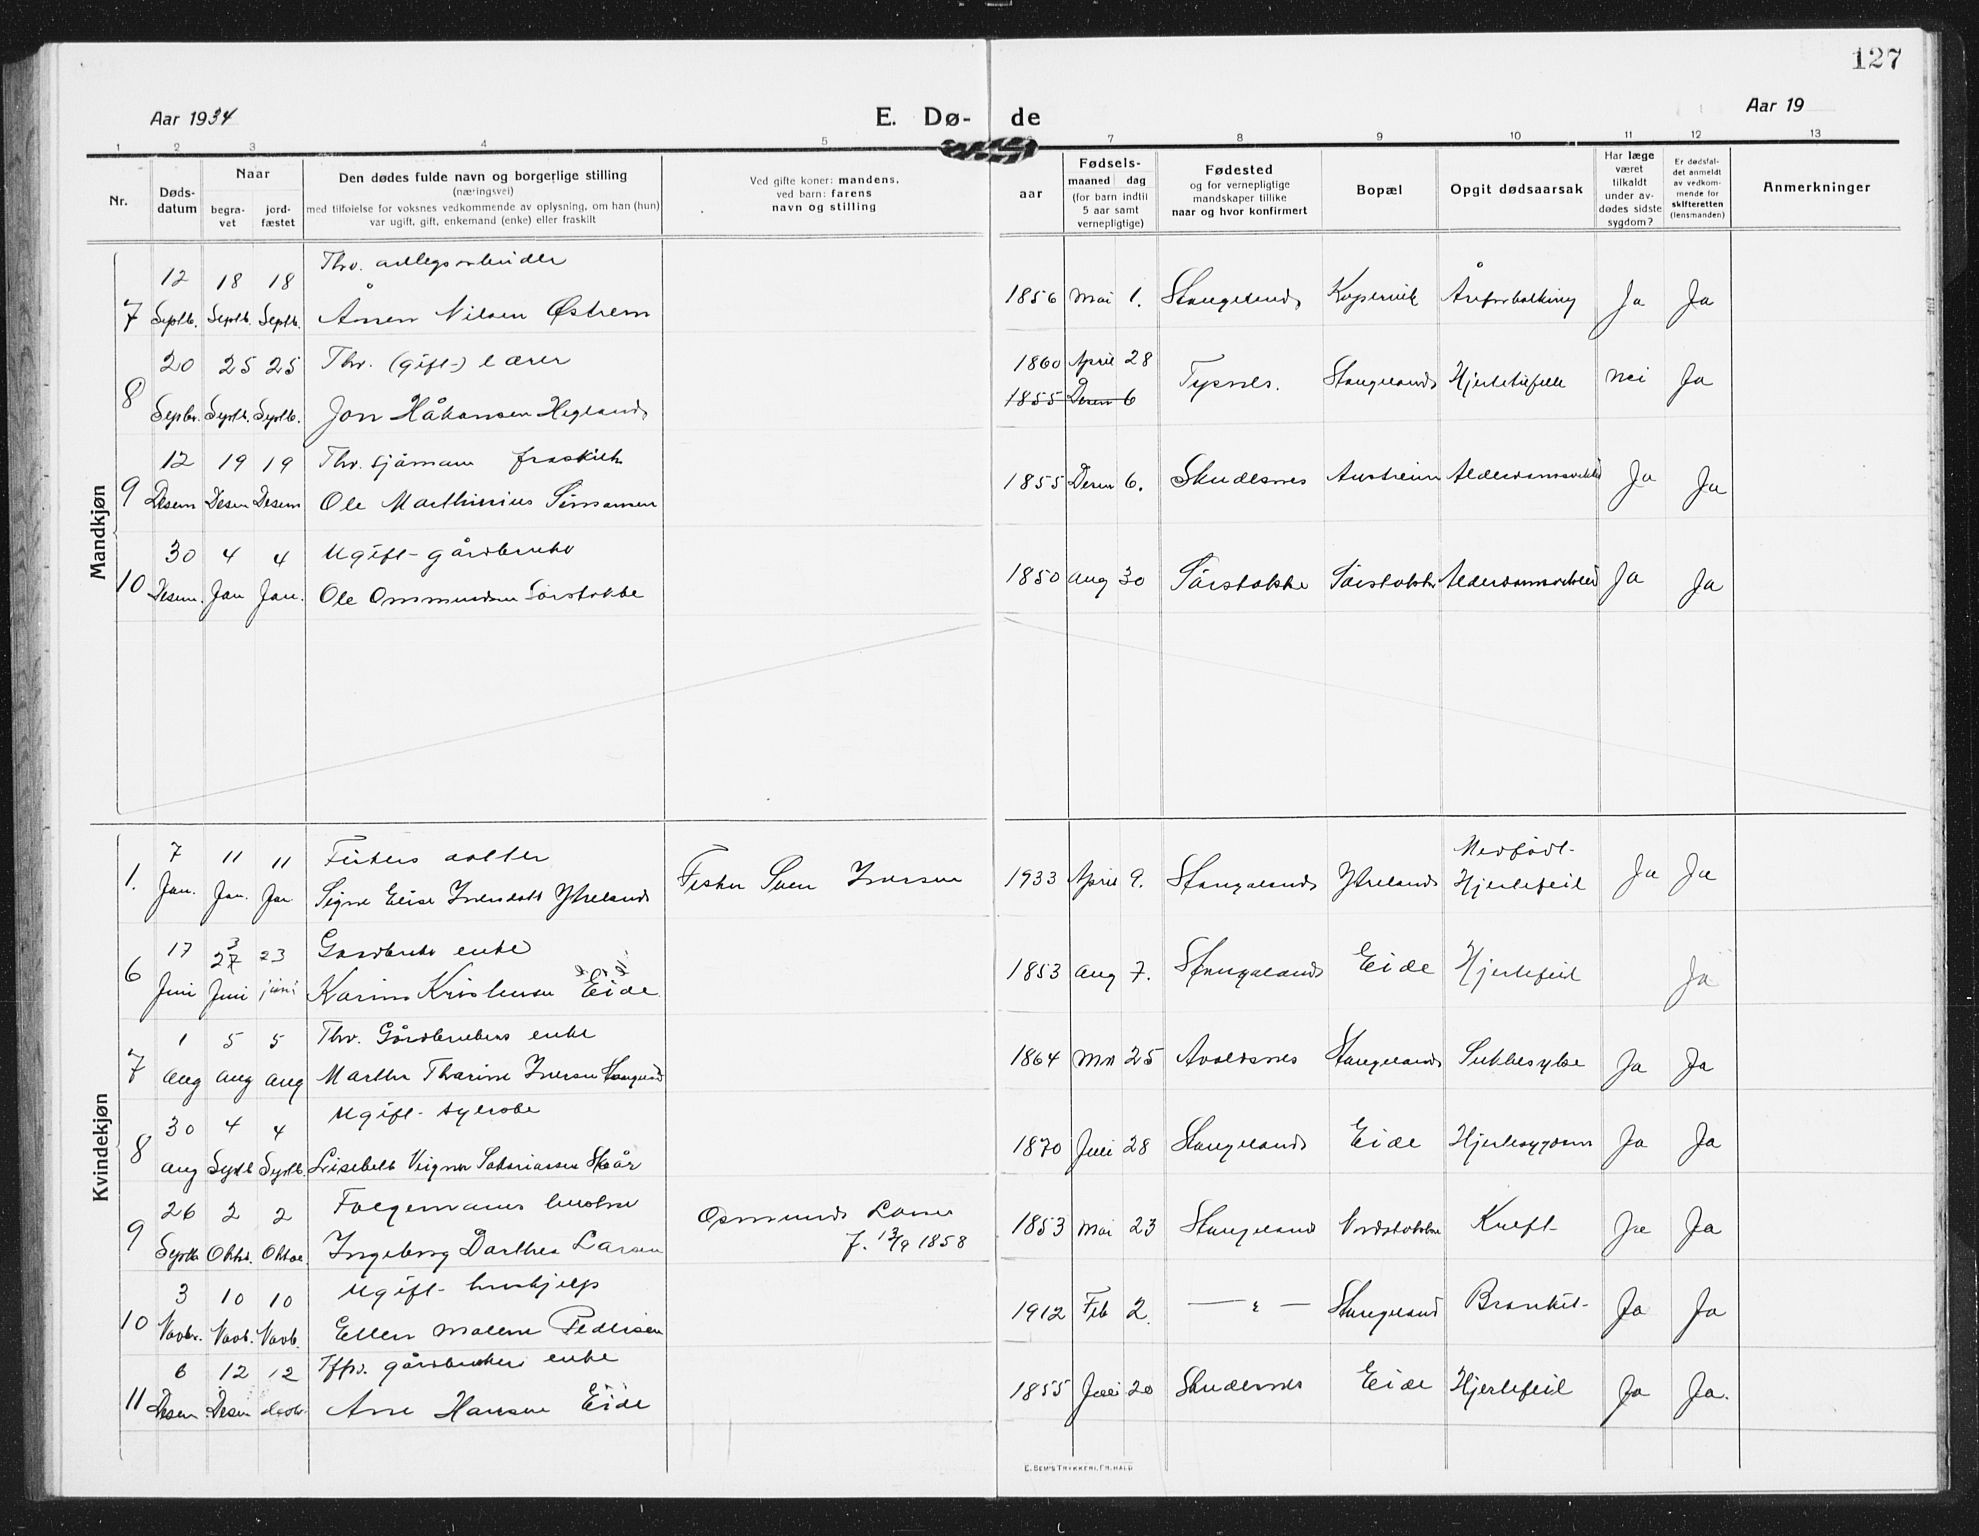 127
Aar 1934
E. Dø- de
Aar 19
1 2 3 4 5 7 8 9 10 11 12 13
Nr.
Døds-
datum
Naar
begra-
vet
jord-
fæstet
Den dødes fulde navn og borgerlige stilling
(næringsvei)
med tilføielse for voksnes vedkommende av oplysning, om han (hun)
var ugift, gift, enkemand (enke) eller fraskilt
Ved gifte koner: mandens,
ved barn: farens
navn og stilling
aar
Fødsels-
maaned dag
(for barn indtil
5 aar samt
vernepligtige)
Fødested
og for vernepligtige
mandskaper tillike
naar og hvor konfirmert
Bopæl
Opgit dødsaarsak
Har læge
været
tilkaldt
under av-
dødes sidste
sygdom?
Er dødsfal-
det anmeldt
av vedkom-
mende for
skifteretten
(lensmanden)
Anmerkninger
Mandkjøn
12 18 18 Thv.
7 Septb. Septb. Septb. Ånen Nilsen Østrem 1856 Mai 1. Stangeland Kopervik Åreforkalkning Ja Ja
20 25 25 Thv. (gift) lærer 1860 April 28
8 Septbr. Septb. Septb. Jon Håkonsen Hegland 1855 Desem 6 Tysnes. Stangeland Hjertetilfelle Nei Ja
12 19 19 Thv. sjømann fraskilt
9 Desem Desem Desem Ole Marthinius Simonsen 1855 Desem 6. Skudesnes Austreim Alderdomssvakhed Ja Ja
30 4 4 Ugift gårdbruker
10 Desem. Jan Jan. Ole Ommundsen Sørstokke 1850 Aug 30 Sørstokke Sørstokke Alderdomssvakhed Ja Ja
Kvindekjøn
7 11 11 Fiskers datter Medfødt
1. Jan. Jan. Jan Signe Elise Iversdatt Ytreland Fisker Sven Iversen 1933 April 9. Stangeland Ytreland Hjertefeil Ja Ja
17 27 3 23 Gardbruker enke
6 Juni Juni juni Karine Kristensen Eide 1853 Aug 7. Stangeland Eide Hjertefeil Ja
1 5 5 Thv. Gårdbrukers enke
7 Aug Aug Aug Marthe Tharine Iversen Stangeland 1864 25 Avaldsnes Stangeland Sukkersyke Ja Ja
30 4 4 Ugift
8 Aug Septb Septb. Lisebett Sakariassen Skår 1870 Juli 28 Stangeland Eide Hjertesygdom Ja Ja
26 2 2 Folgemanns hustru Osmund Larsen
9 Septb Oktbr. Oktbr. Ingeborg Dorthea Larsen f. 13/9 1858 1853 Mai 23 Stangeland Nordstokke Kreft Ja Ja
3 10 10 Ugift hushjelp
10 Novbr. Novb. Novb. Ellen Malene Pedersen 1912 Feb 2. — " — Stangeland Bronkit Ja Ja
6 12 12 Thv. gårdbrukers enke
11 Desem Desem desbr. Ane Hansen Eide 1855 Juli 20 Skudesnes Eide Hjertefeil Ja Ja.
E. SEM'S TRYKKERI, FR.HALD